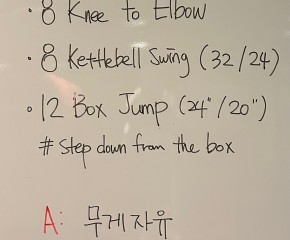 · 8 Knee to Elbow
· 8 Kettlebell Swing (32/24)
· 12 Box Jump (24"/20")
# Step down from the box
A: 무게자유